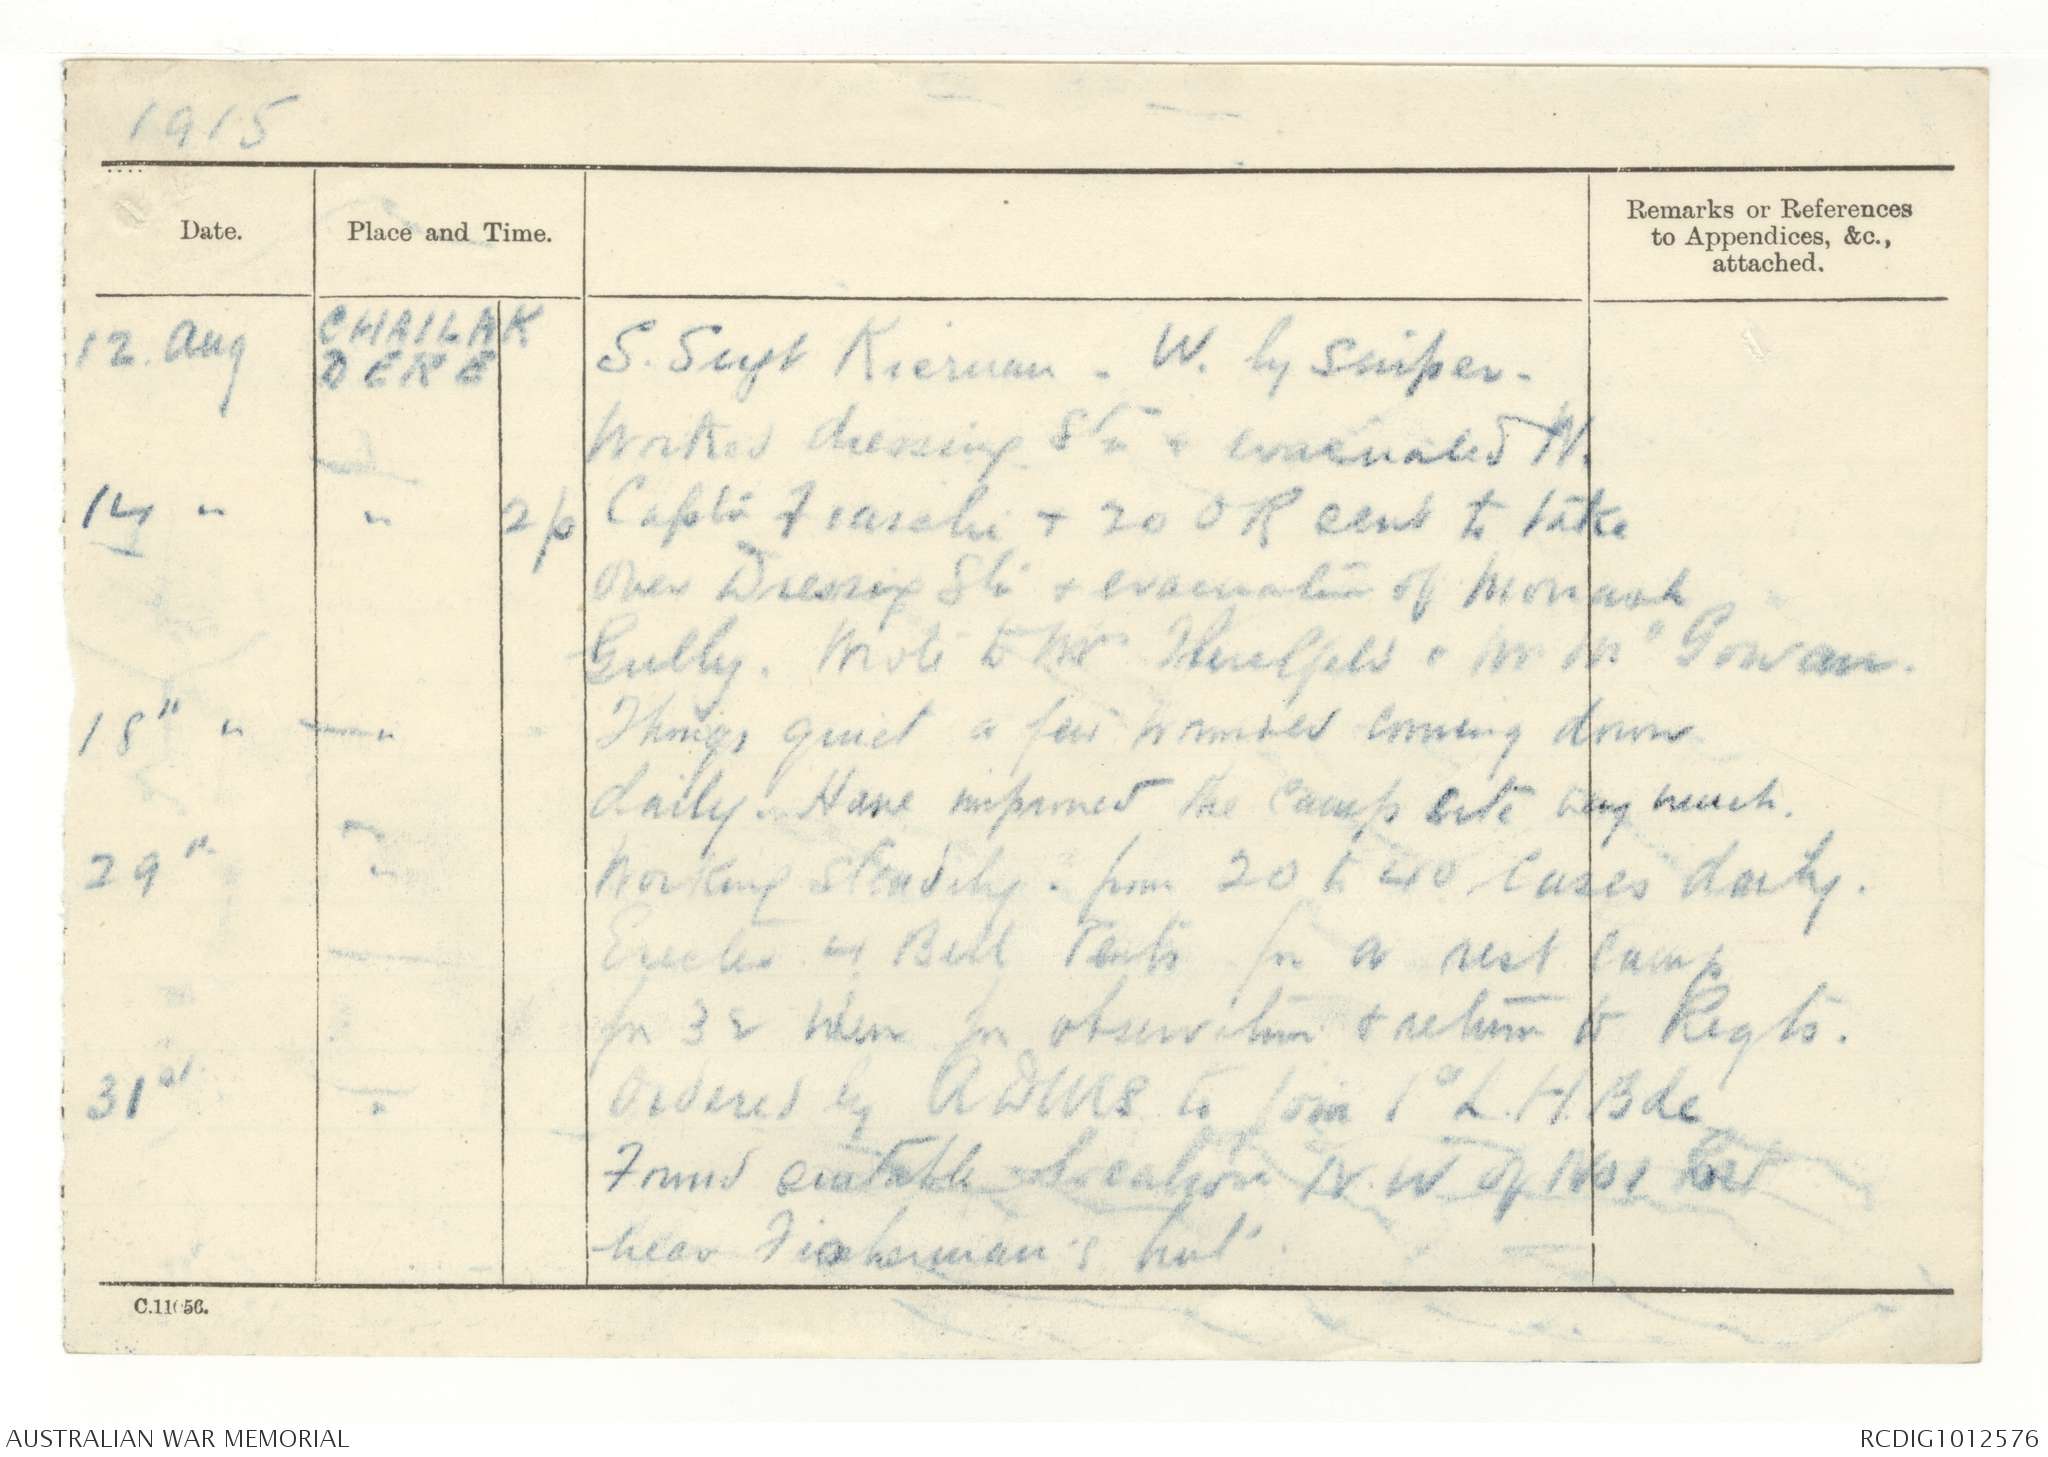 1915
Date.
Place and Time.
Remarks or References
to Appendices, &c.,
attached.
12. Aug CHAILAK
DERE
S. Sergt Kiernan - W. by sniper -
Worked dressing Stn + evacuated W.
14 " " 2 p Captn Fiaschi + 20 OR sent to take
over Dressing Stn + evacuation of Monash
Gully. Wrote to Mr + Mr McGowan.
18" " " Things quiet a few wounded coming down
daily. Have improved the camp site very much.
29" " Working steadily - from 20 to 40 cases daily.
Erected 4 Bell Tents for a rest camp
for 32 men for observation + return to Regts.
31st " Ordered by ADMS to join 1st L.H.Bde
Found suitable location N.W of No 1 Post
near Fisherman's hut.
AUSTRALIAN WAR MEMORIAL
RCDIG1012576